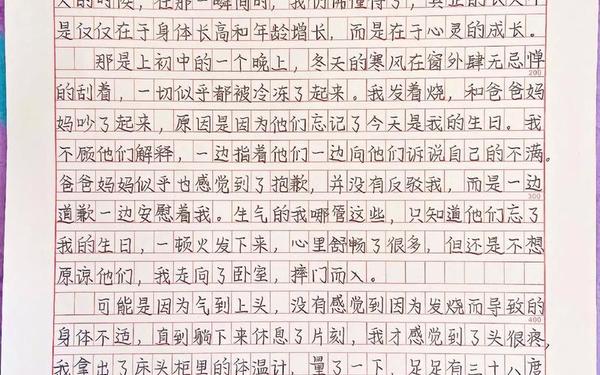 大的时候，在那一瞬间的，我仿佛懂得了，真正的长大不
是仅仅在于身体长高和年龄增长，而是在于心灵的成长。
那是上初中的一个晚上，冬天的寒风在窗外肆无忌惮
200
的刮着，一切似乎都被冷冻了起来。我发着烧，和爸爸妈
妈吵了起来，原因是因为他们忘记了今天是我的生日。我
不顾他们解释，一边指着他们一边向他们诉说自己的不满。
爸爸妈妈似乎也感觉到了抱歉，并没有反驳我，而是一边
300
道歉一边安慰着我。生气的我哪管这些，只知道他们忘了
我的生日，一顿火发下来，心里舒畅了很多，但还是不想
原谅他们，我走向了卧室，摔门而入。
可能是因为气到上头，没有感觉到因为发烧而导致的
400
身体不适，直到躺下来休息了片刻，我才感觉到了头很疼，
我拿出了床头柜里的体温计，量了一下，足足有三十八度